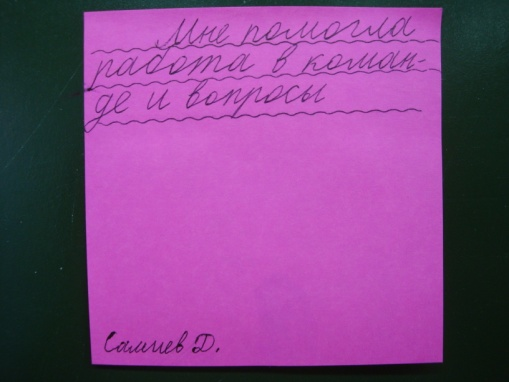 Мне помогла
работа в коман-
де и вопросы
Салиев Д.